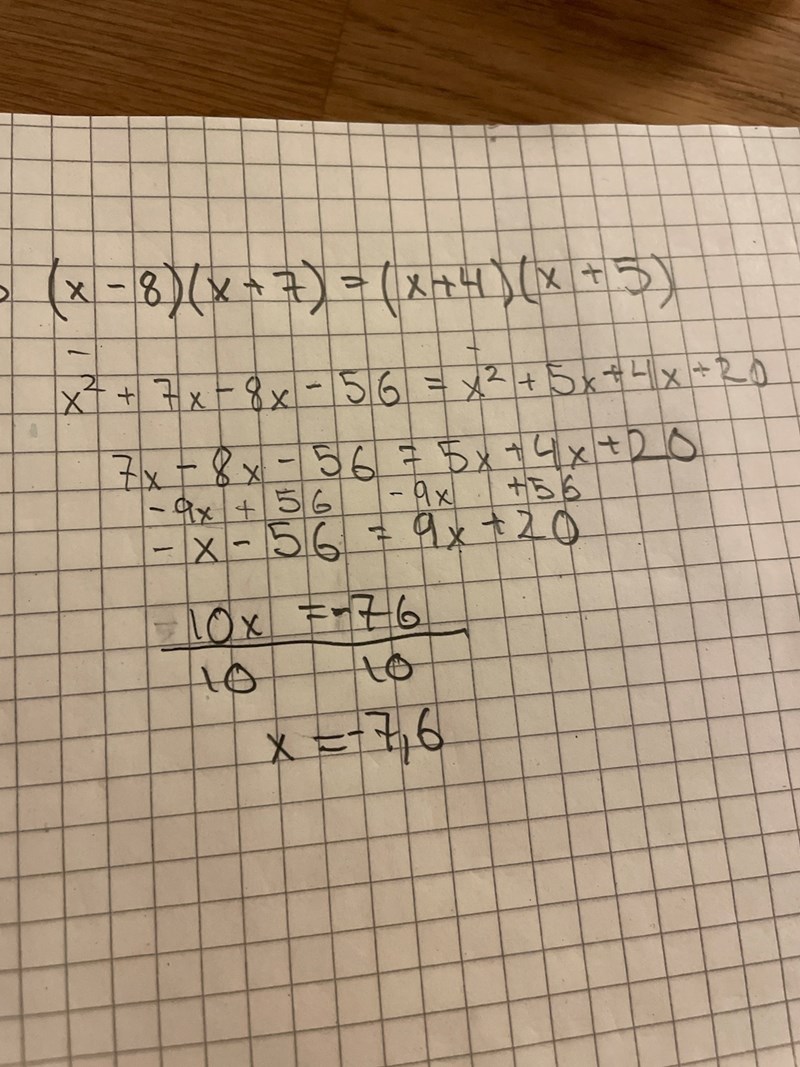 (x - 8)(x + 7) = (x + 4)(x + 5)
x² + 7x - 8x - 56 = x² + 5x + 4x + 20
7x - 8x - 56 = 5x + 4x + 20
- 9x + 56 - 9x + 56
- x - 56 = 9x + 20
10x = -76
10 10
x = -7,6